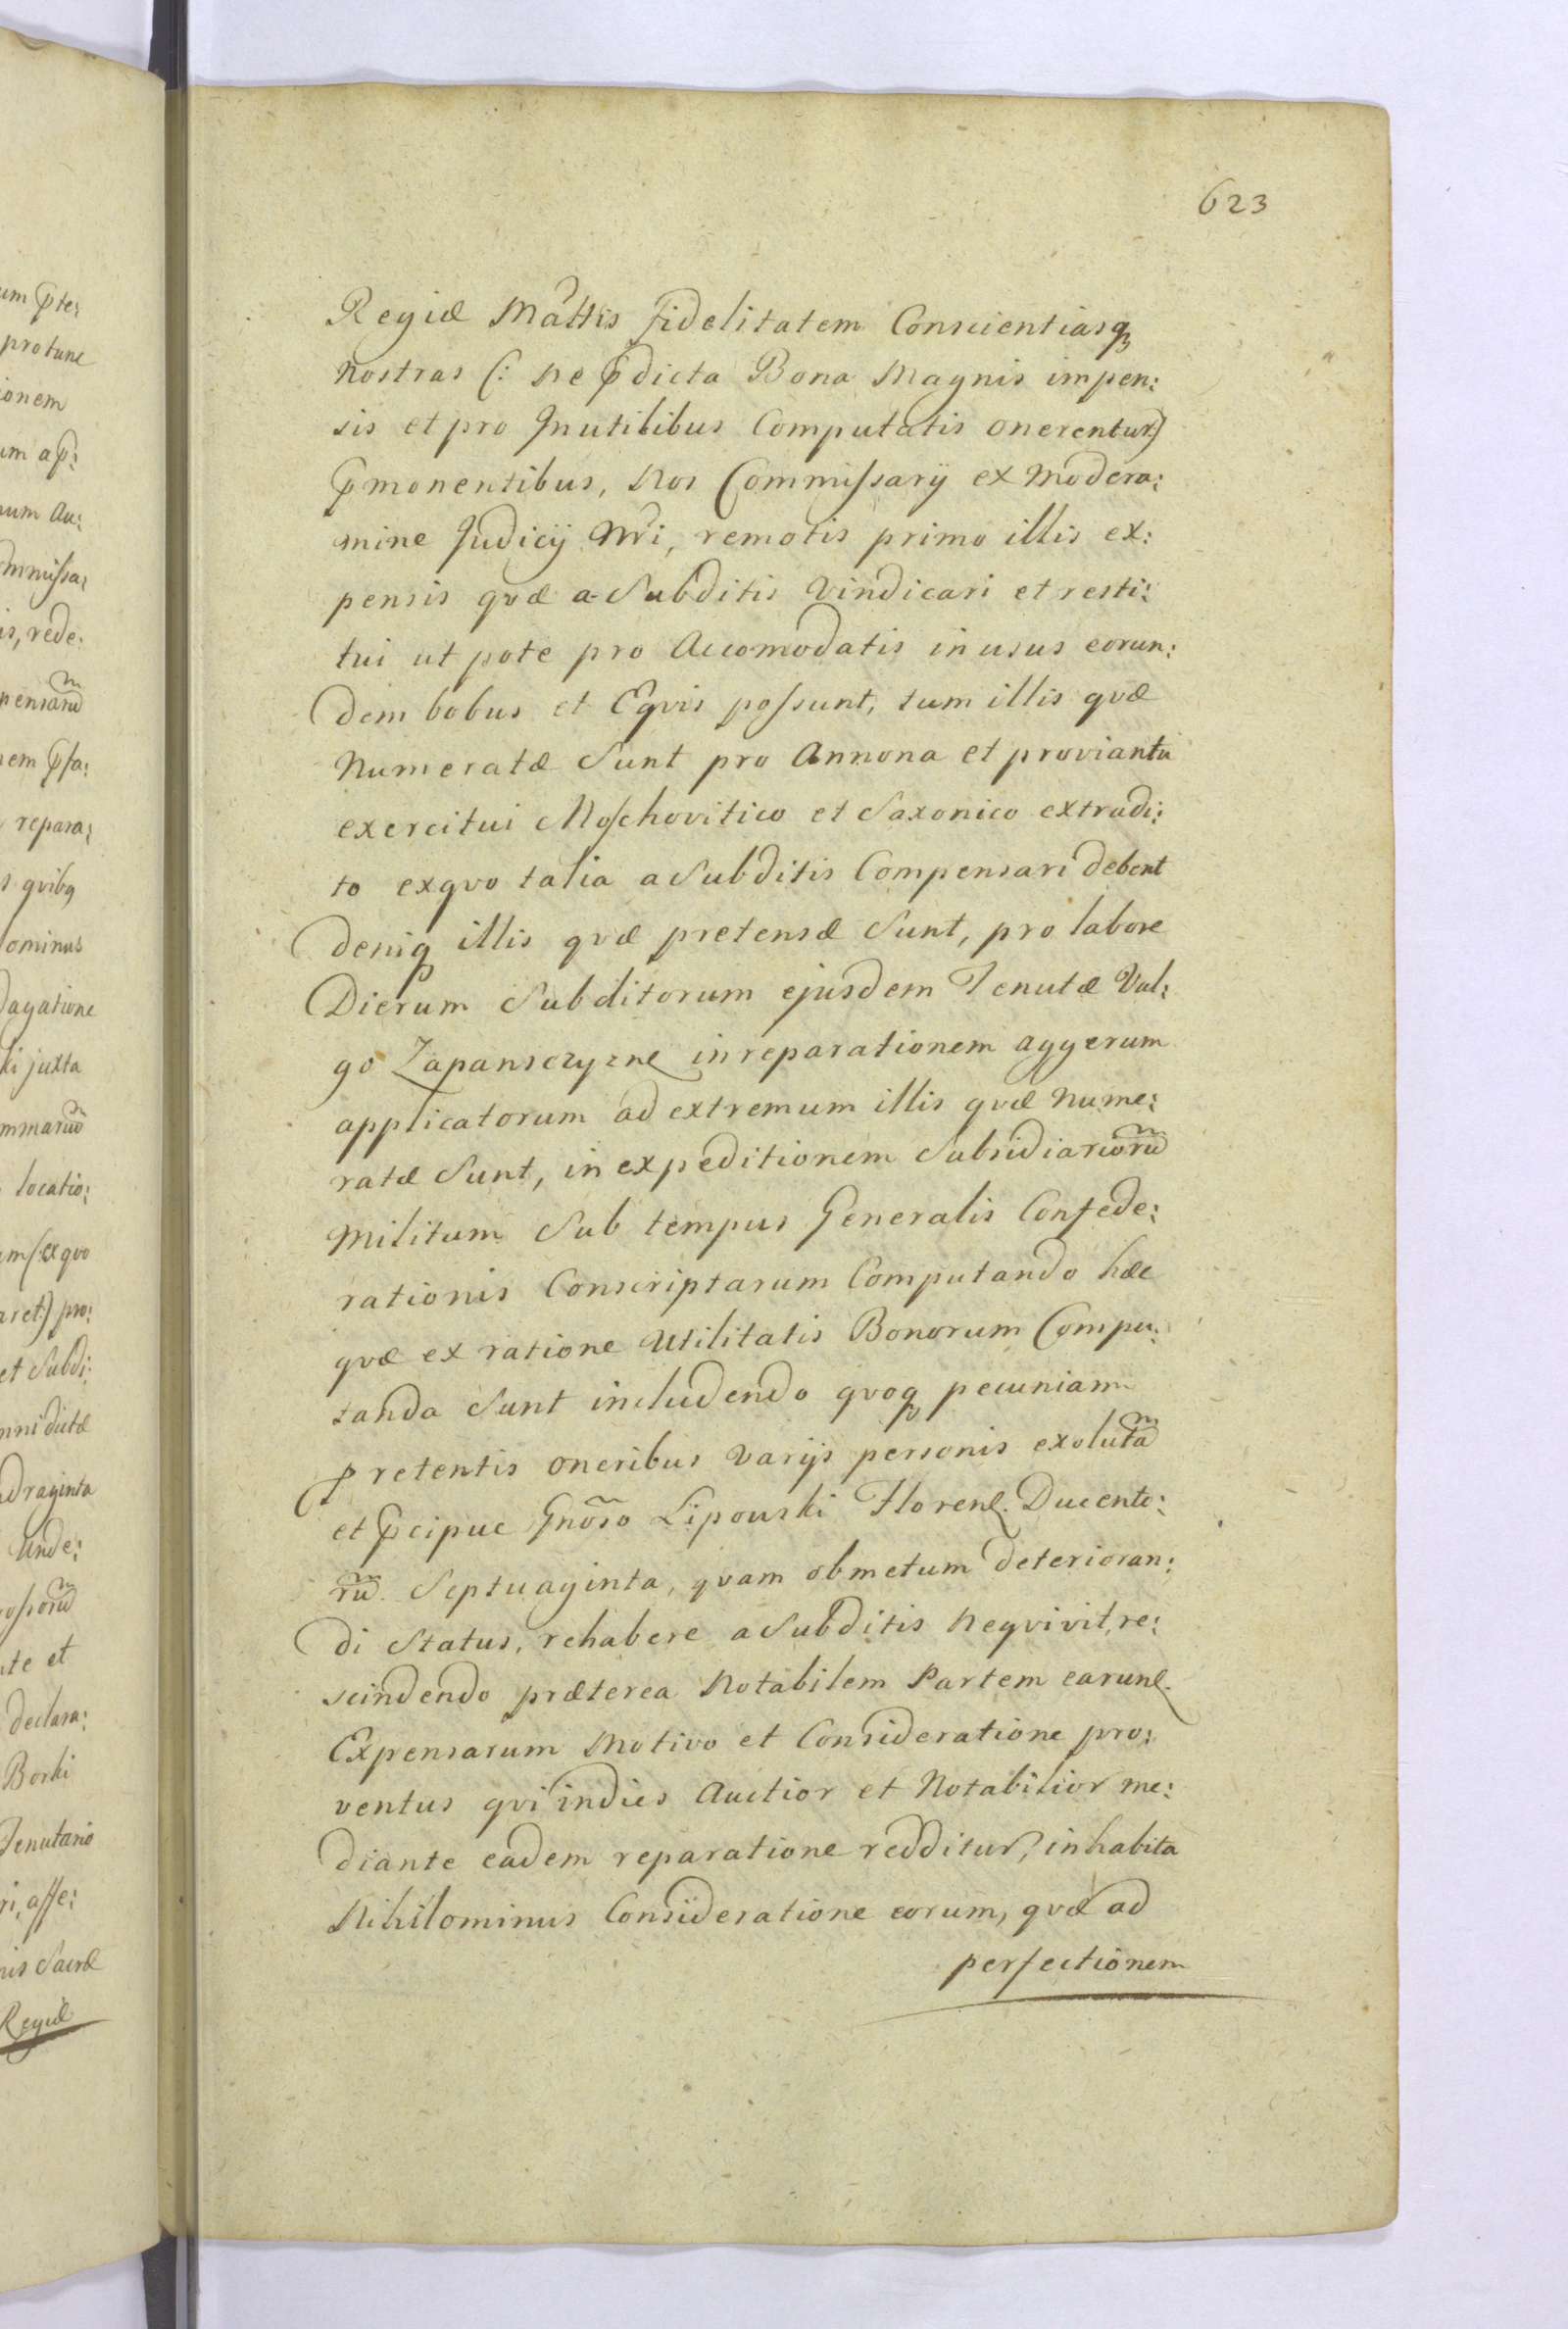 623
Regiæ Mattis fidelitatem Conscientiasq3
nostras (: ne p̃dicta Bona Magnis impen:
sis et pro Inutilibus Computatis onerentur)
p̃monentibus, Nos Commissarij ex Modera:
mine Judicij Nri, remotis primo illis ex:
pensis qvæ a Subditis Vindicari et resti:
tui ut pote pro Accomodatis in usus eorun:
dem bobus et Eqvis possunt, tum illis qvæ
Numeratæ Sunt pro Annona et proviantu
exercitui Moschovitico et Saxonico extradi:
to exqvo talia a Subditis Compensari debent
deniq illis qvæ pretensæ Sunt, pro labore
Dierum Subditorum ejusdem Tenutæ Vul:
go Zapansczyzne in reparationem aggerum
applicatorum ad extremum illis qvæ Nume:
ratæ Sunt, in expeditionem Subsidiariorũ
Militum Sub tempus Generalis Confede:
rationis Conscriptarum Computando hæc
qvæ ex ratione Utilitatis Bonorum Compu:
tanda Sunt includendo qvoq pecuniam
pretentis oneribus varijs personis exolutã
et p̃cipue Gnõso Lipowski Floren. Ducento:
rũ. Septuaginta, qvam ob metum deterioran:
di Status, rehabere a Subditis Neqvivit, re:
scindendo præterea Notabilem Partem earun.
Expensarum Motivo et Consideratione pro:
ventus qvi indies Auctior et Notabilior me:
diante eadem reparatione redditur, inhabita
Nihilominus Consideratione eorum, qvæ ad
perfectionem
um p̃te:
protunc
ionem
um ap̃:
num Au:
mmissa:
is, rede:
pensarũ
nem p̃fa:
repara:
s qvibq
ominus
dagatione
ki juxta
mmarũ
locatio:
m (: ex qvo
aret:) pro:
et Subdi:
nni dictæ
adraginta
Unde:
ossorũ
te et
declara:
Borki
Tenutario
ri, asse:
nis Sacræ
Regiæ